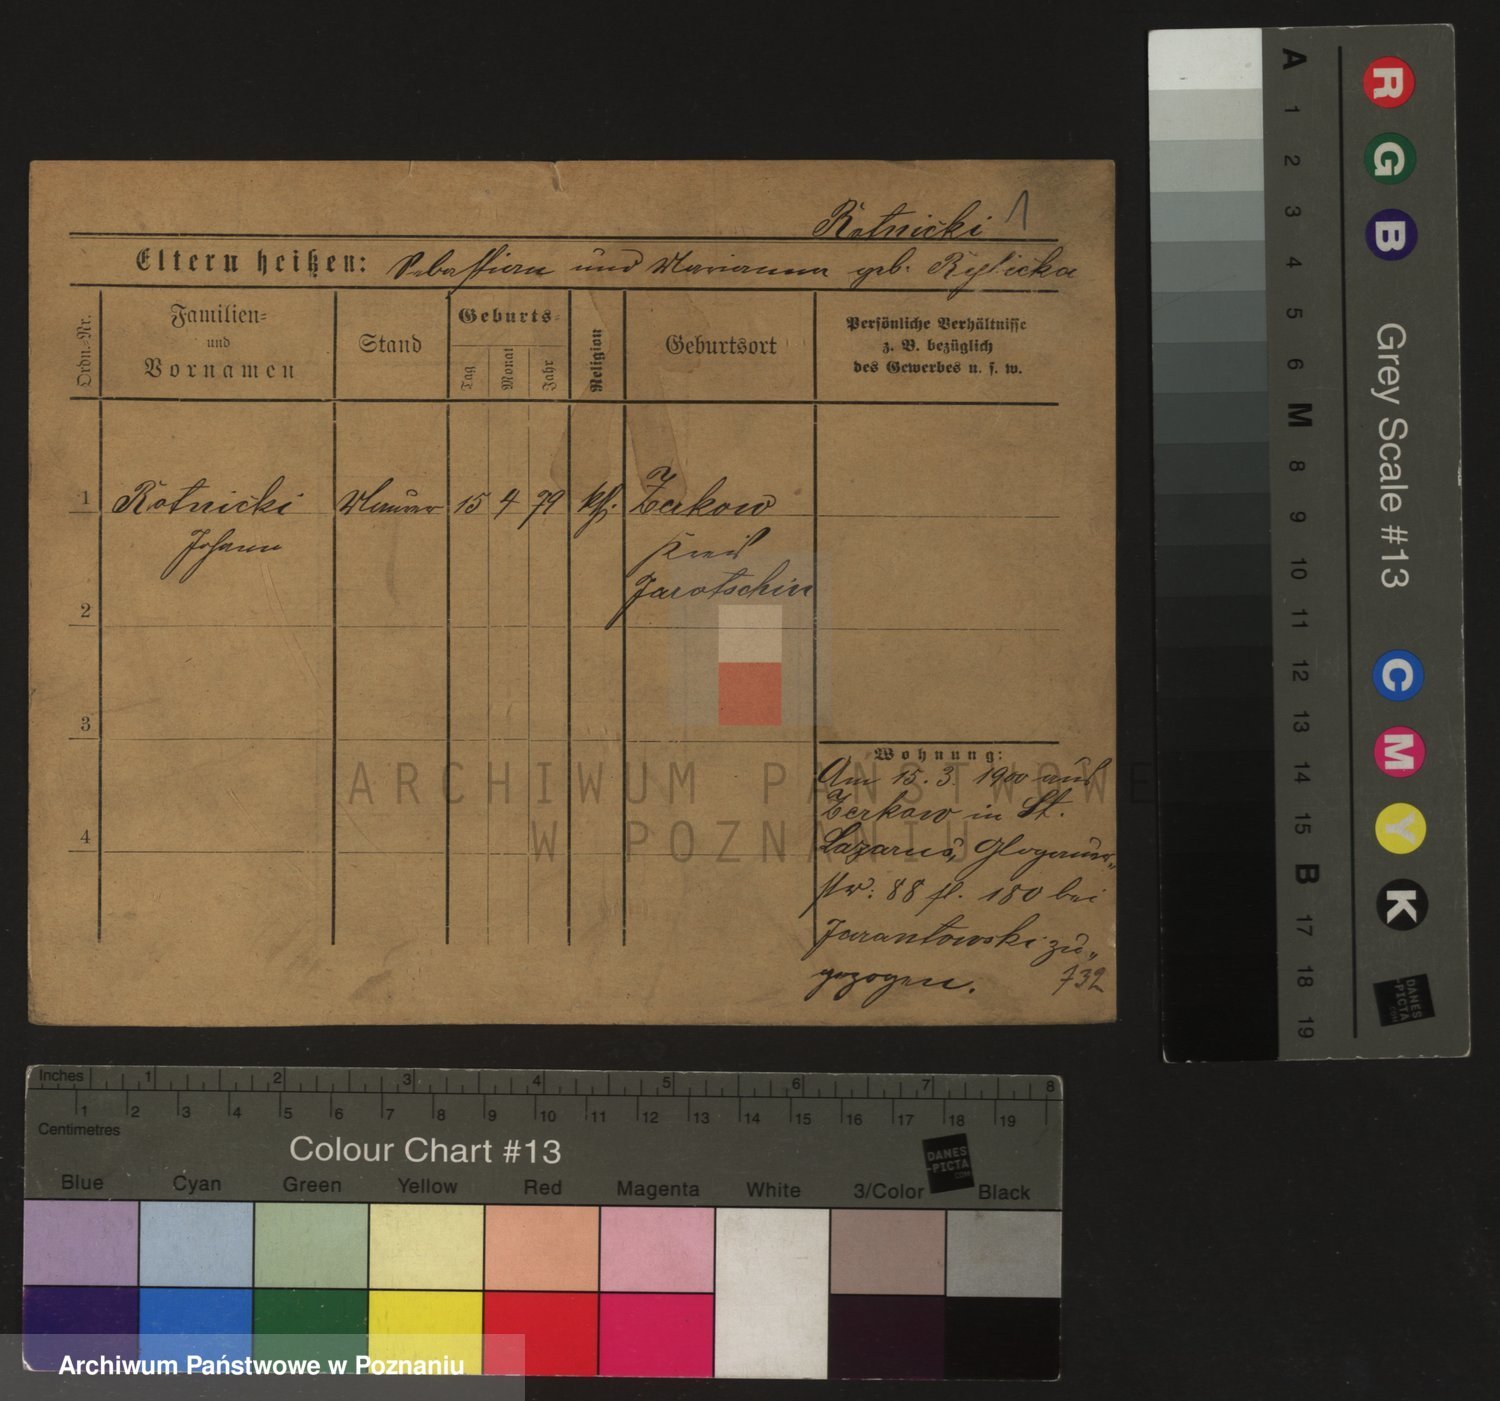 Rotnicki 1
Eltern heißen: Sebastian und Marianna geb. Rylicka
Ordn.-Nr.
Familien-
und
Vornamen
Stand
Geburts-
Tag
Monat
Jahr
Religion
Geburtsort
Persönliche Verhältnisse
z. B. bezüglich
des Gewerbes u. s. w.
1 Rotnicki Maurer 15 4 79 kth. Zerkow
Johann Kreis
Jarotschin
2
3
4
Wohnung:
Am 15. 3. 1900 aus
Zerkow in St.
Lazarus, Glogauer-
str: 88 fl. 180 bei
Jarantowski zu-
gezogen. 732
ARCHIWUM PAŃSTWOWE
W POZNANIU
A 1 2 3 4 5 6 M 8 9 10 11 12 13 14 15 B 17 18 19
R G B
Grey Scale #13
C M Y K
DANES
-PICTA
.COM
Inches 1 2 3 4 5 6 7 8
1 2 3 4 5 6 7 8 9 10 11 12 13 14 15 16 17 18 19
Centimetres
Colour Chart #13
DANES
-PICTA
.COM
Blue Cyan Green Yellow Red Magenta White 3/Color Black
Archiwum Państwowe w Poznaniu